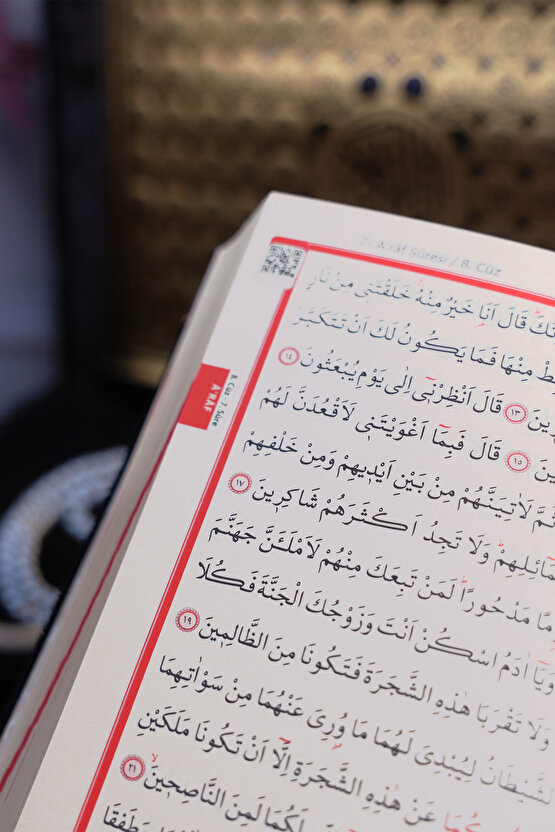 7 - A'râf Sûresi / 8. Cüz
قَالَ اَنَا۬ خَيْرٌ مِنْهُۚ خَلَقْتَن۪ي مِنْ نَارٍ
مِنْهَا فَمَا يَكُونُ لَكَ اَنْ تَتَكَبَّرَ
﴿١٣﴾ قَالَ اَنْظِرْن۪ٓي اِلٰى يَوْمِ يُبْعَثُونَ ﴿١٤﴾
﴿١٥﴾ قَالَ فَبِمَٓا اَغْوَيْتَن۪ي لَاَقْعُدَنَّ لَهُمْ
لَاٰتِيَنَّهُمْ مِنْ بَيْنِ اَيْد۪يهِمْ وَمِنْ خَلْفِهِمْ
وَلَا تَجِدُ اَكْثَرَهُمْ شَاكِر۪ينَ ﴿١٧﴾
مَذْحُورًاۜ لَمَنْ تَبِعَكَ مِنْهُمْ لَاَمْلَـَٔنَّ جَهَنَّمَ
وَيَٓا اٰدَمُ اسْكُنْ اَنْتَ وَزَوْجُكَ الْجَنَّةَ فَكُلَا
وَلَا تَقْرَبَا هٰذِهِ الشَّجَرَةَ فَتَكُونَا مِنَ الظَّالِم۪ينَ ﴿١٩﴾
الشَّيْطَانُ لِيُبْدِيَ لَهُمَا مَا وُرِيَ عَنْهُمَا مِنْ سَوْاٰتِهِمَا
عَنْ هٰذِهِ الشَّجَرَةِ اِلَّٓا اَنْ تَكُونَا مَلَكَيْنِ
لَكُمَا لَمِنَ النَّاصِح۪ينَۙ ﴿٢١﴾
وَطَفِقَا
8. Cüz 7. Sûre
A'RAF